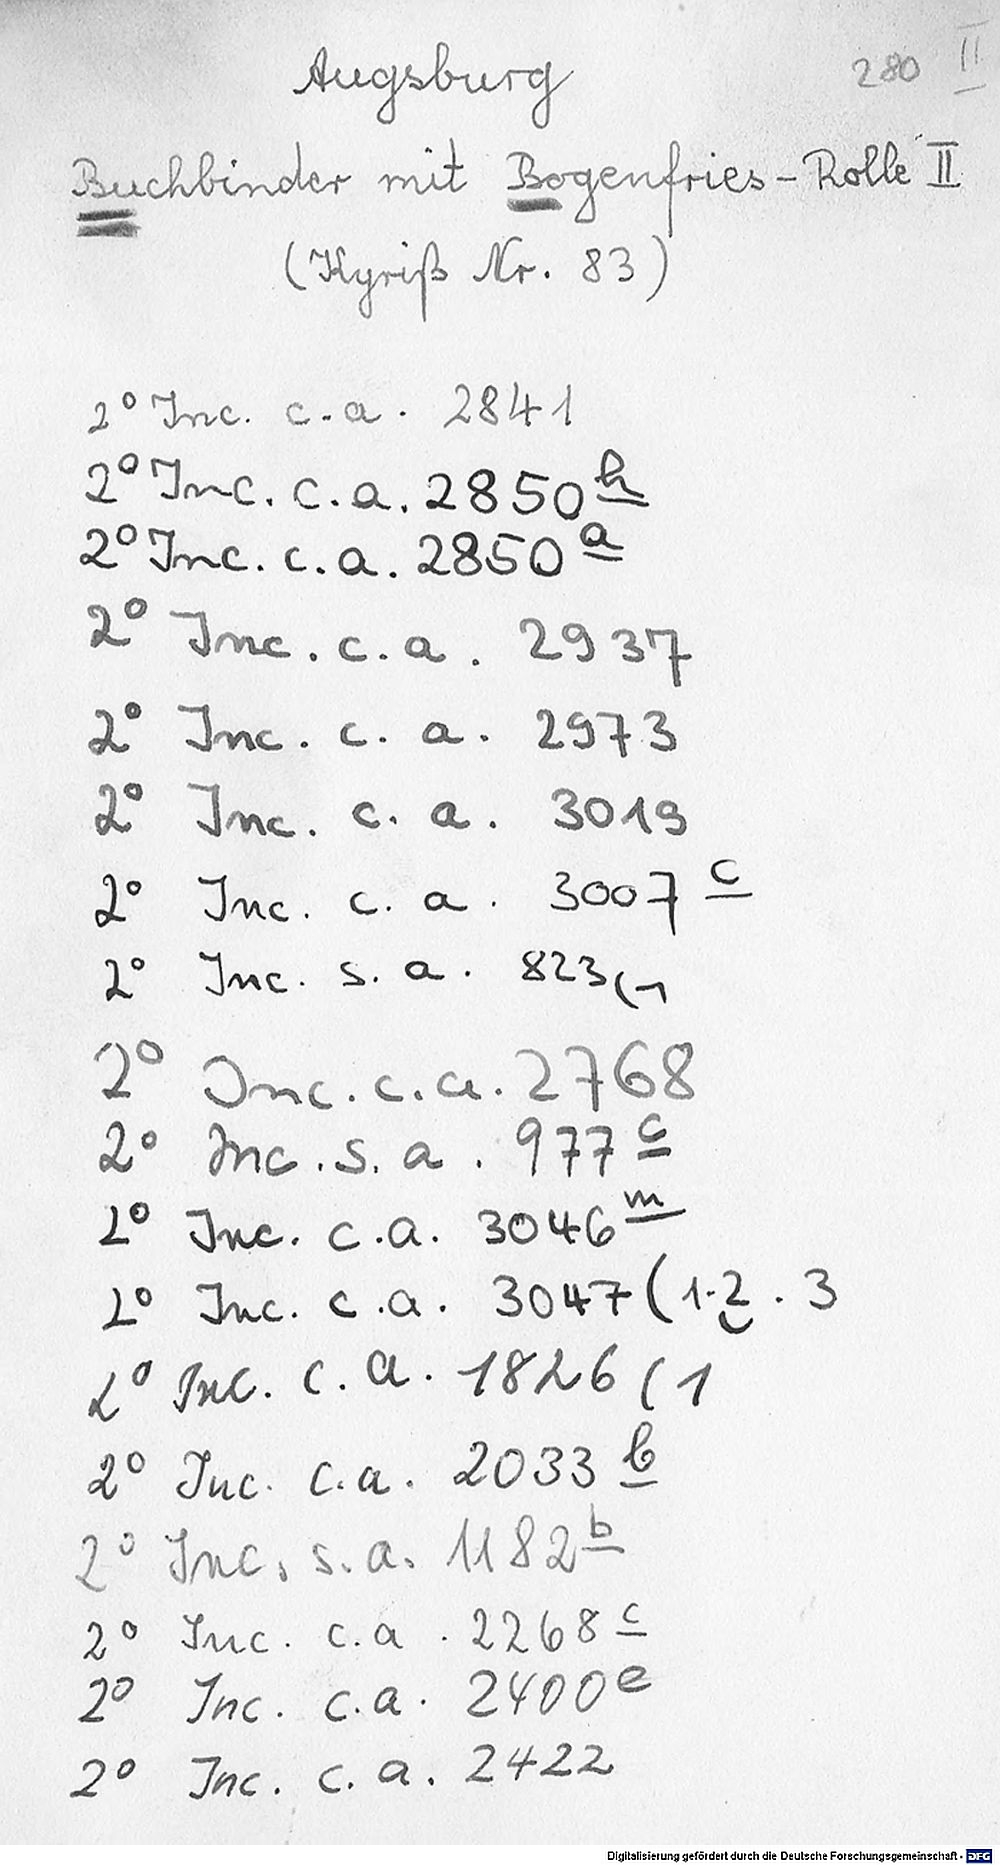 Augsburg 280 II
Buchbinder mit Bogenfries-Rolle II
(Kyriß Nr. 83)
2° Inc. c.a. 2841
2° Inc. c.a. 2850 h
2° Inc. c.a. 2850 a
2° Inc. c.a. 2937
2° Inc. c.a. 2973
2° Inc. c.a. 3019
2° Inc. c.a. 3007 c
2° Inc. s.a. 823(1
2° Inc. c.a. 2768
2° Inc. s.a. 977 c
2° Inc. c.a. 3046 m
2° Inc. c.a. 3047 (1.2.3
2° Inc. c.a. 1826 (1
2° Inc. c.a. 2033 b
2° Inc. s.a. 1182 b
2° Inc. c.a. 2268 c
2° Inc. c.a. 2400 e
2° Inc. c.a. 2422
Digitalisierung gefördert durch die Deutsche Forschungsgemeinschaft - DFG